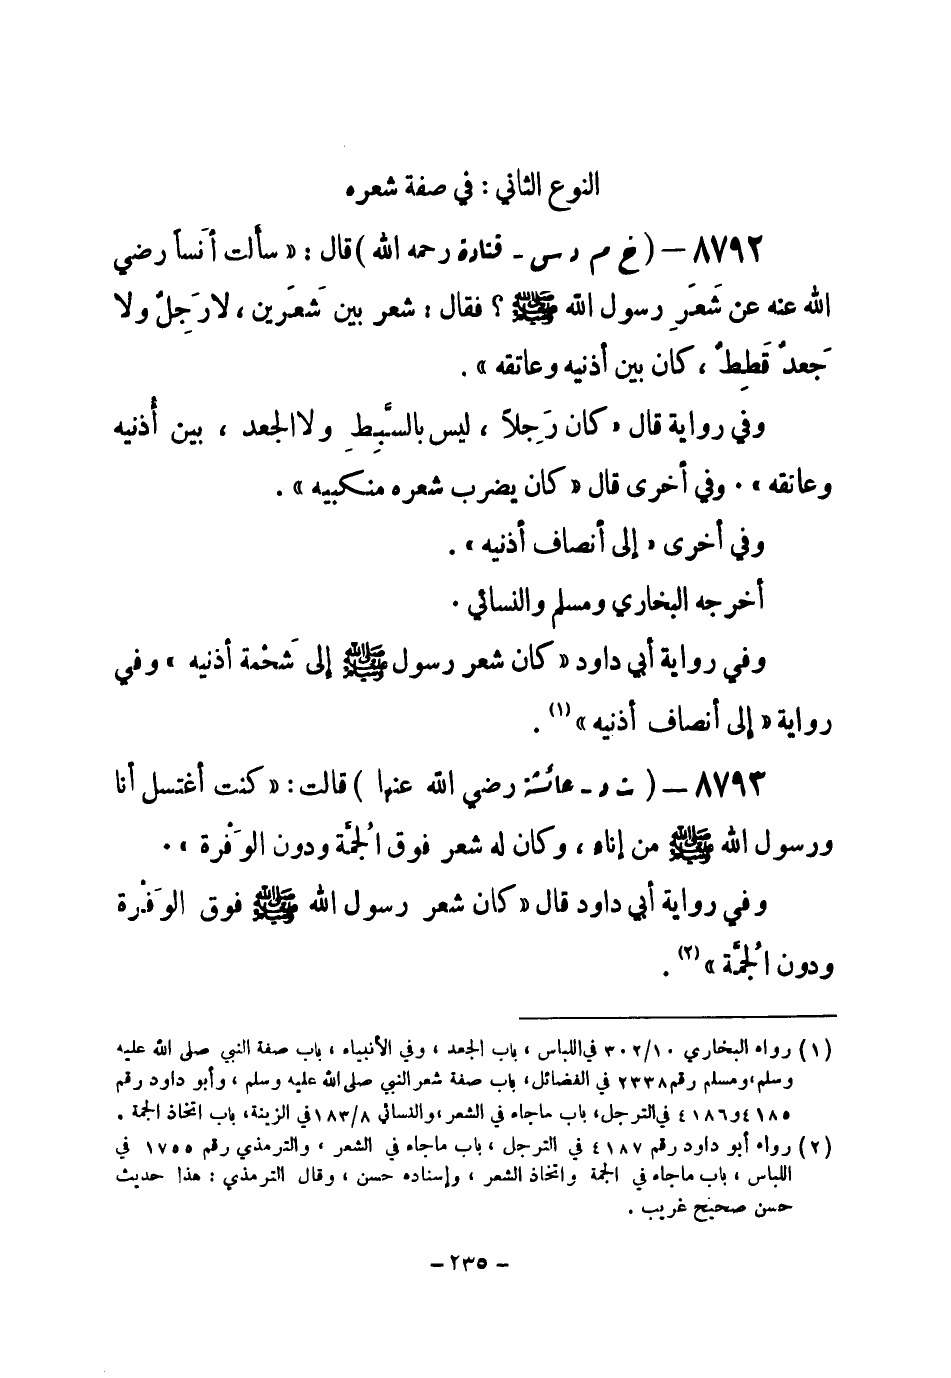 النوع الثاني : في صفة شعره
٨٧٩٢ – ( خ م د س - قتادة رحمه الله ) قال : « سألت أَنَساً رضي
الله عنه عن شَعَرِ رسول الله ﷺ ؟ فقال : شعر بين شَعَرَين ، لا رَجِلٌ ولا
جَعدٌ قَطِطٌ ، كان بين أذنيه وعاتقه » .
وفي رواية قال « كان رَجِلاً ، ليس بالسَّبِطِ ولا الجعد ، بين أُذنيه
وعاتقه » . وفي أخرى قال « كان يضرب شعره منكبيه » .
وفي أخرى « إلى أنصاف أذنيه » .
أخرجه البخاري ومسلم والنسائي .
وفي رواية أبي داود « كان شعر رسول ﷺ إلى شَحْمة أذنيه » وفي
رواية « إلى أنصاف أذنيه » (١) .
٨٧٩٣ – ( ت د - عائشة رضي الله عنها ) قالت : « كنت أغتسل أنا
ورسول الله ﷺ من إناء ، وكان له شعر فوق الْجُمَّة ودون الوَفْرة » .
وفي رواية أبي داود قال « كان شعر رسول الله ﷺ فوق الوَفْرة
ودون الْجُمَّة » (٢) .
(١) رواه البخاري ٣٠٢/١٠ في اللباس ، باب الجعد ، وفي الأنبياء ، باب صفة النبي صلى الله عليه
وسلم ، ومسلم رقم ٢٣٣٨ في الفضائل ، باب صفة شعر النبي صلى الله عليه وسلم ، وأبو داود رقم
٤١٨٥ و ٤١٨٦ في الترجل ، باب ماجاء في الشعر ، والنسائي ١٨٣/٨ في الزينة ، باب اتخاذ الجمة .
(٢) رواه أبو داود رقم ٤١٨٧ في الترجل ، باب ماجاء في الشعر ، والترمذي رقم ١٧٥٥ في
اللباس ، باب ماجاء في الجمة واتخاذ الشعر ، وإسناده حسن ، وقال الترمذي : هذا حديث
حسن صحيح غريب .
– ٢٣٥ –